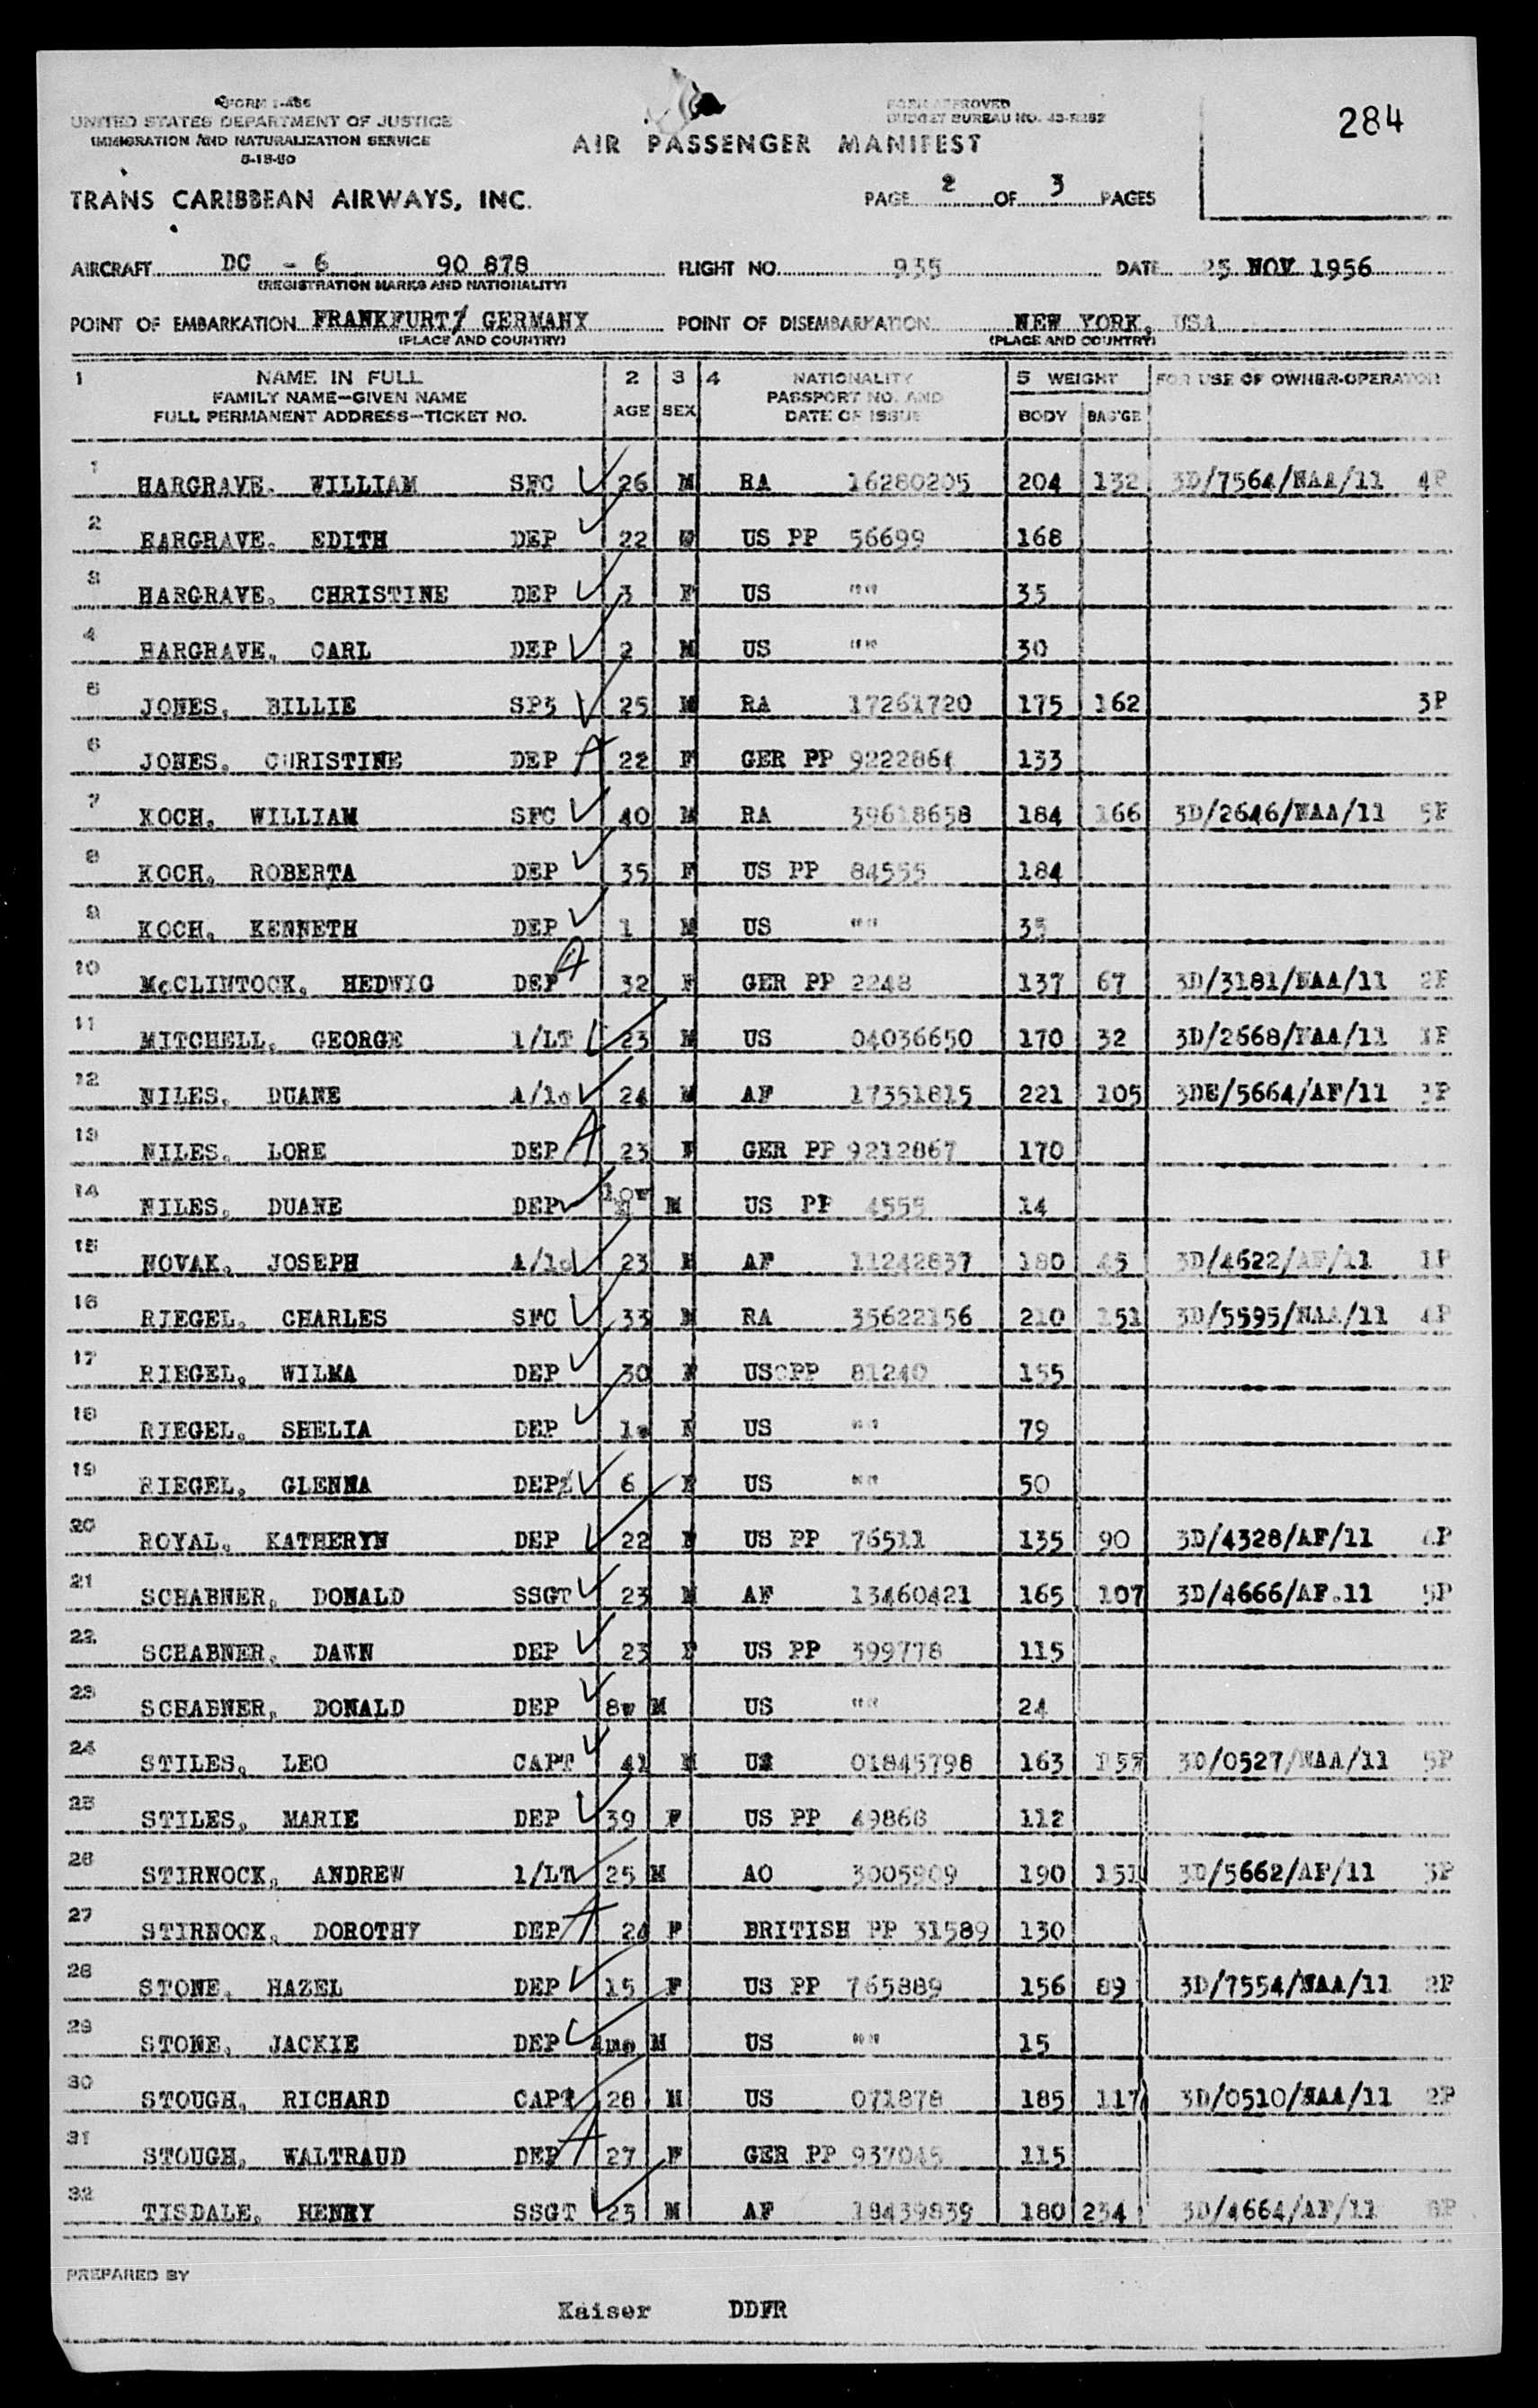 FORM I-466
UNITED STATES DEPARTMENT OF JUSTICE
IMMIGRATION AND NATURALIZATION SERVICE
FORM APPROVED
BUDGET BUREAU NO. 43-R282
284
AIR PASSENGER MANIFEST
TRANS CARIBBEAN AIRWAYS, INC.
PAGE 2 OF 3 PAGES
AIRCRAFT DC - 6 90 878 FLIGHT NO. 935 DATE 25 NOV 1956
(REGISTRATION MARKS AND NATIONALITY)
POINT OF EMBARKATION FRANKFURT/ GERMANY POINT OF DISEMBARKATION NEW YORK, USA
(PLACE AND COUNTRY) (PLACE AND COUNTRY)
1 NAME IN FULL 2 3 4 NATIONALITY 5 WEIGHT FOR USE OF OWNER-OPERATOR
FAMILY NAME—GIVEN NAME AGE SEX PASSPORT NO. AND BODY BAG'GE
FULL PERMANENT ADDRESS—TICKET NO. DATE OF ISSUE
1 HARGRAVE, WILLIAM SFC 26 M RA 16280205 204 132 3D/7564/NAA/11 4P
2 HARGRAVE, EDITH DEP 22 US PP 56699 168
3 HARGRAVE, CHRISTINE DEP 3 F US "" 35
4 HARGRAVE, CARL DEP 2 M US "" 30
5 JONES, BILLIE SP3 25 M RA 17261720 175 162 3P
6 JONES, CHRISTINE DEP A 22 F GER PP 133
7 KOCH, WILLIAM SFC 40 M RA 39618658 184 166 3D/2646/NAA/11 5P
8 KOCH, ROBERTA DEP 35 F US PP 84555 184
9 KOCH, KENNETH DEP 1 M US "" 35
10 McCLINTOCK, HEDWIG DEP A 32 F GER PP 2248 137 67 3D/3181/NAA/11 2P
11 MITCHELL, GEORGE 1/LT 23 M US 04036650 170 32 3D/2668/NAA/11 1P
12 NILES, DUANE A/1c 24 M AF 17351815 221 105 3DE/5664/AF/11 3P
13 NILES, LORE DEP A 23 F GER PP 9212867 170
14 NILES, DUANE DEP 10w M US PP 4555 14
15 NOVAK, JOSEPH A/1c 23 AF 11242837 180 45 3D/4622/AF/11 1P
16 RIEGEL, CHARLES SFC 33 M RA 35622156 210 151 3D/5595/NAA/11 4P
17 RIEGEL, WILMA DEP 30 F US PP 81240 155
18 RIEGEL, SHELIA DEP F US "" 79
19 RIEGEL, GLENNA DEP 6 F US "" 50
20 ROYAL, KATHERYN DEP 22 F US PP 76511 135 90 3D/4328/AF/11
21 SCHABNER, DONALD SSGT 23 M AF 13460421 165 107 3D/4666/AF.11 5P
22 SCHABNER, DAWN DEP 23 F US PP 399778 115
23 SCHABNER, DONALD DEP 8w M US "" 24
24 STILES, LEO CAPT 41 M US 01845798 163 3D/0527/NAA/11 5P
25 STILES, MARIE DEP 39 F US PP 49868 112
26 STIRNOCK, ANDREW 1/LT 25 M AO 3005909 190 151 3D/5662/AF/11 3P
27 STIRNOCK, DOROTHY DEP A 24 F BRITISH PP 31589 130
28 STONE, HAZEL DEP 15 F US PP 765889 156 89 3D/7554/NAA/11 2P
29 STONE, JACKIE DEP 4mo M US "" 15
30 STOUGH, RICHARD CAPT 28 M US 071878 185 117 3D/0510/NAA/11 2P
31 STOUGH, WALTRAUD DEP A 27 F GER PP 937045 115
32 TISDALE, HENRY SSGT 23 M AF 18439839 180 234 3D/4664/AF/11
PREPARED BY
Kaiser DDFR